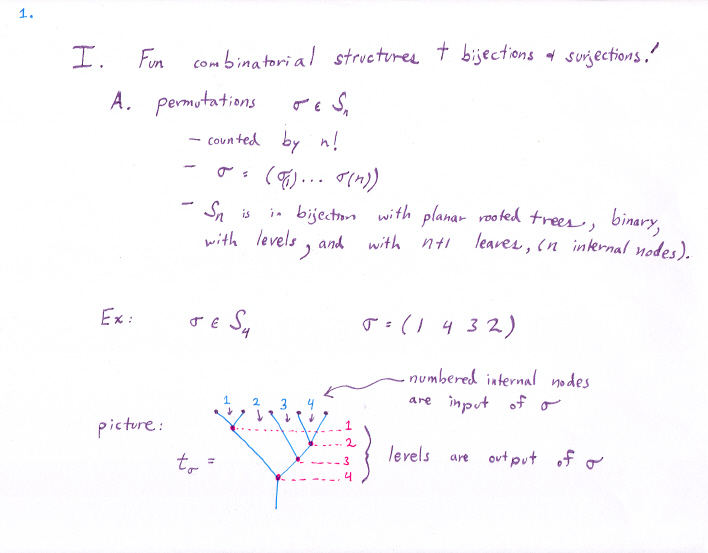 1.
I. Fun combinatorial structures + bijections & surjections!
A. permutations σ ∈ Sₙ
– counted by n!
– σ = (σ(1) ... σ(n))
– Sₙ is in bijection with planar rooted trees, binary,
with levels, and with n+1 leaves, (n internal nodes).
Ex: σ ∈ S₄ σ = (1 4 3 2)
numbered internal nodes
are input of σ
1 2 3 4
picture:
1
2
levels are output of σ
t_σ =
3
4